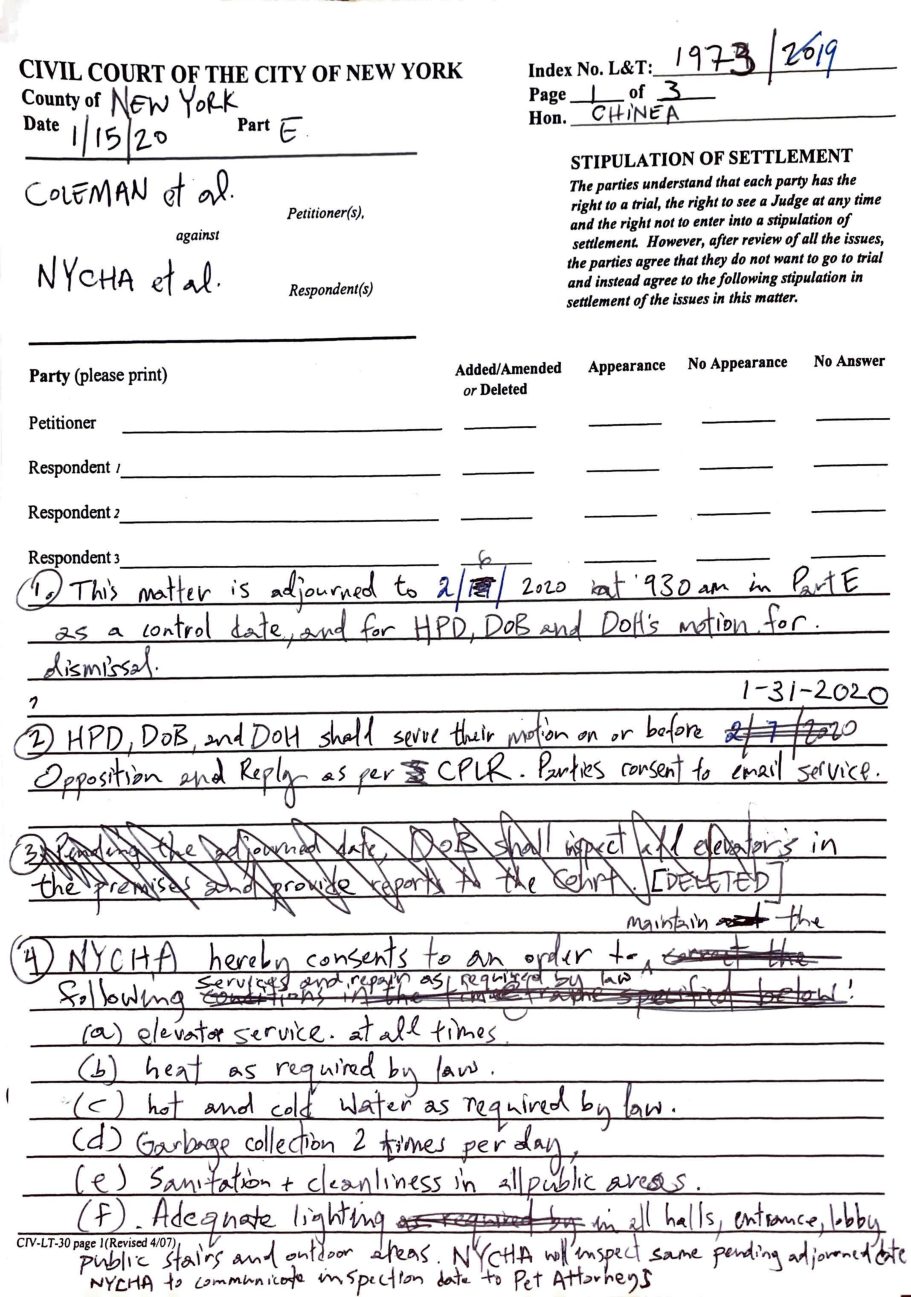 CIVIL COURT OF THE CITY OF NEW YORK
County of NEW YORK
Date 1/15/20 Part E
Index No. L&T: 1973/2019
Page 1 of 3
Hon. CHINEA
COLEMAN et al.
Petitioner(s),
against
NYCHA et al.
Respondent(s)
STIPULATION OF SETTLEMENT
The parties understand that each party has the
right to a trial, the right to see a Judge at any time
and the right not to enter into a stipulation of
settlement. However, after review of all the issues,
the parties agree that they do not want to go to trial
and instead agree to the following stipulation in
settlement of the issues in this matter.
Party (please print) Added/Amended or Deleted Appearance No Appearance No Answer
Petitioner
Respondent 1
Respondent 2
Respondent 3
1. This matter is adjourned to 2/6/2020 at 930 am in Part E
as a control date, and for HPD, DOB and DOH's motion for
dismissal.
1-31-2020
2 HPD, DOB, and DOH shall serve their motion on or before 2/7/2020
Opposition and Reply as per CPLR. Parties consent to email service.
3. Pending the adjourned date, DOB shall inspect all elevators in
the premises and provide reports to the Court. [DELETED]
maintain the
4 NYCHA hereby consents to an order to correct the
services and repair as required by law
following conditions in the time frame specified below:
(a) elevator service at all times
(b) heat as required by law.
(c) hot and cold water as required by law.
(d) Garbage collection 2 times per day,
(e) Sanitation + cleanliness in all public areas.
(f). Adequate lighting as required by in all halls, entrance, lobby
CIV-LT-30 page 1 (Revised 4/07)
public stairs and outdoor areas. NYCHA will inspect same pending adjourned date
NYCHA to communicate inspection date to Pet Attorneys